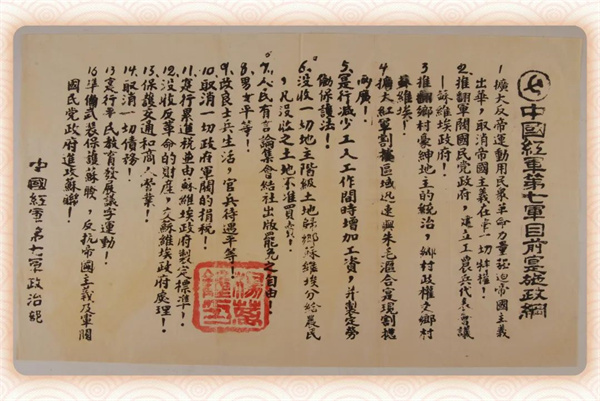 中國紅軍第七軍目前实施政綱
1 擴大反帝運動用民眾革命力量驅逐帝國主義
出華,取消帝國主義在華一切特權!
2. 推翻軍閥國民党政府,建立工農兵代表會議
—蘇維埃政府!
3 推翻鄉村豪紳地主的統治,鄉村政权交鄉村
蘇維埃!
4 擴大紅軍割據區域迅速與朱毛滙合实現割據
兩廣!
5. 实行減少工人工作間時增加工資,并製定勞
働保護法!
6. 没收一切地主階級土地歸鄉蘇維埃分給農民
,凡没收之土地不准買賣!
7. 人民有言論集會結社出版罷免之自由!
8. 男女平等!
9. 改良士兵生活,官兵待遇平等!
10. 取消一切政府軍閥的捐税!
11. 实行累進税並由蘇維埃政府製定標準!
12. 没收反革命的財産,交蘇維埃政府處理!
13. 保護交通和商人營業!
14. 取消一切債務!
15 实行平民教育發展識字運動!
16 準備武裝保護蘇联,反抗帝國主義及軍閥
國民党政府進攻蘇联!
中國紅軍第七軍政治部